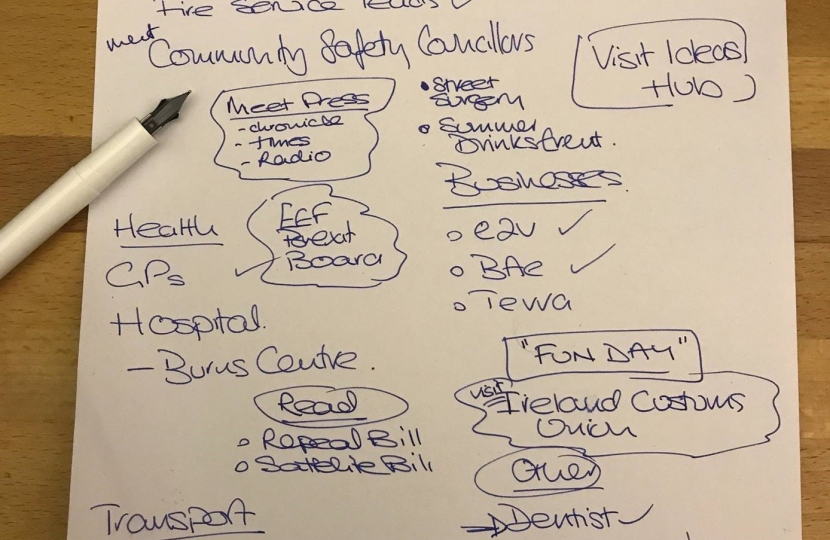 Fire Service leads ✓
meet Community Safety Councillors
Visit Ideas
Hub
Meet Press
- chronicle
- times
- Radio
• Street
Surgery
• Summer
Drinks Event.
Businesses
○ e2v ✓
○ BAe ✓
○ Tevva
Health
GPs
Hospital.
- Burns Centre.
✓
Board
"FUN DAY"
visit Ireland Customs
Union
Read
○ Repeal Bill
○ Satellite Bill
Other
→ Dentist ✓
Transport